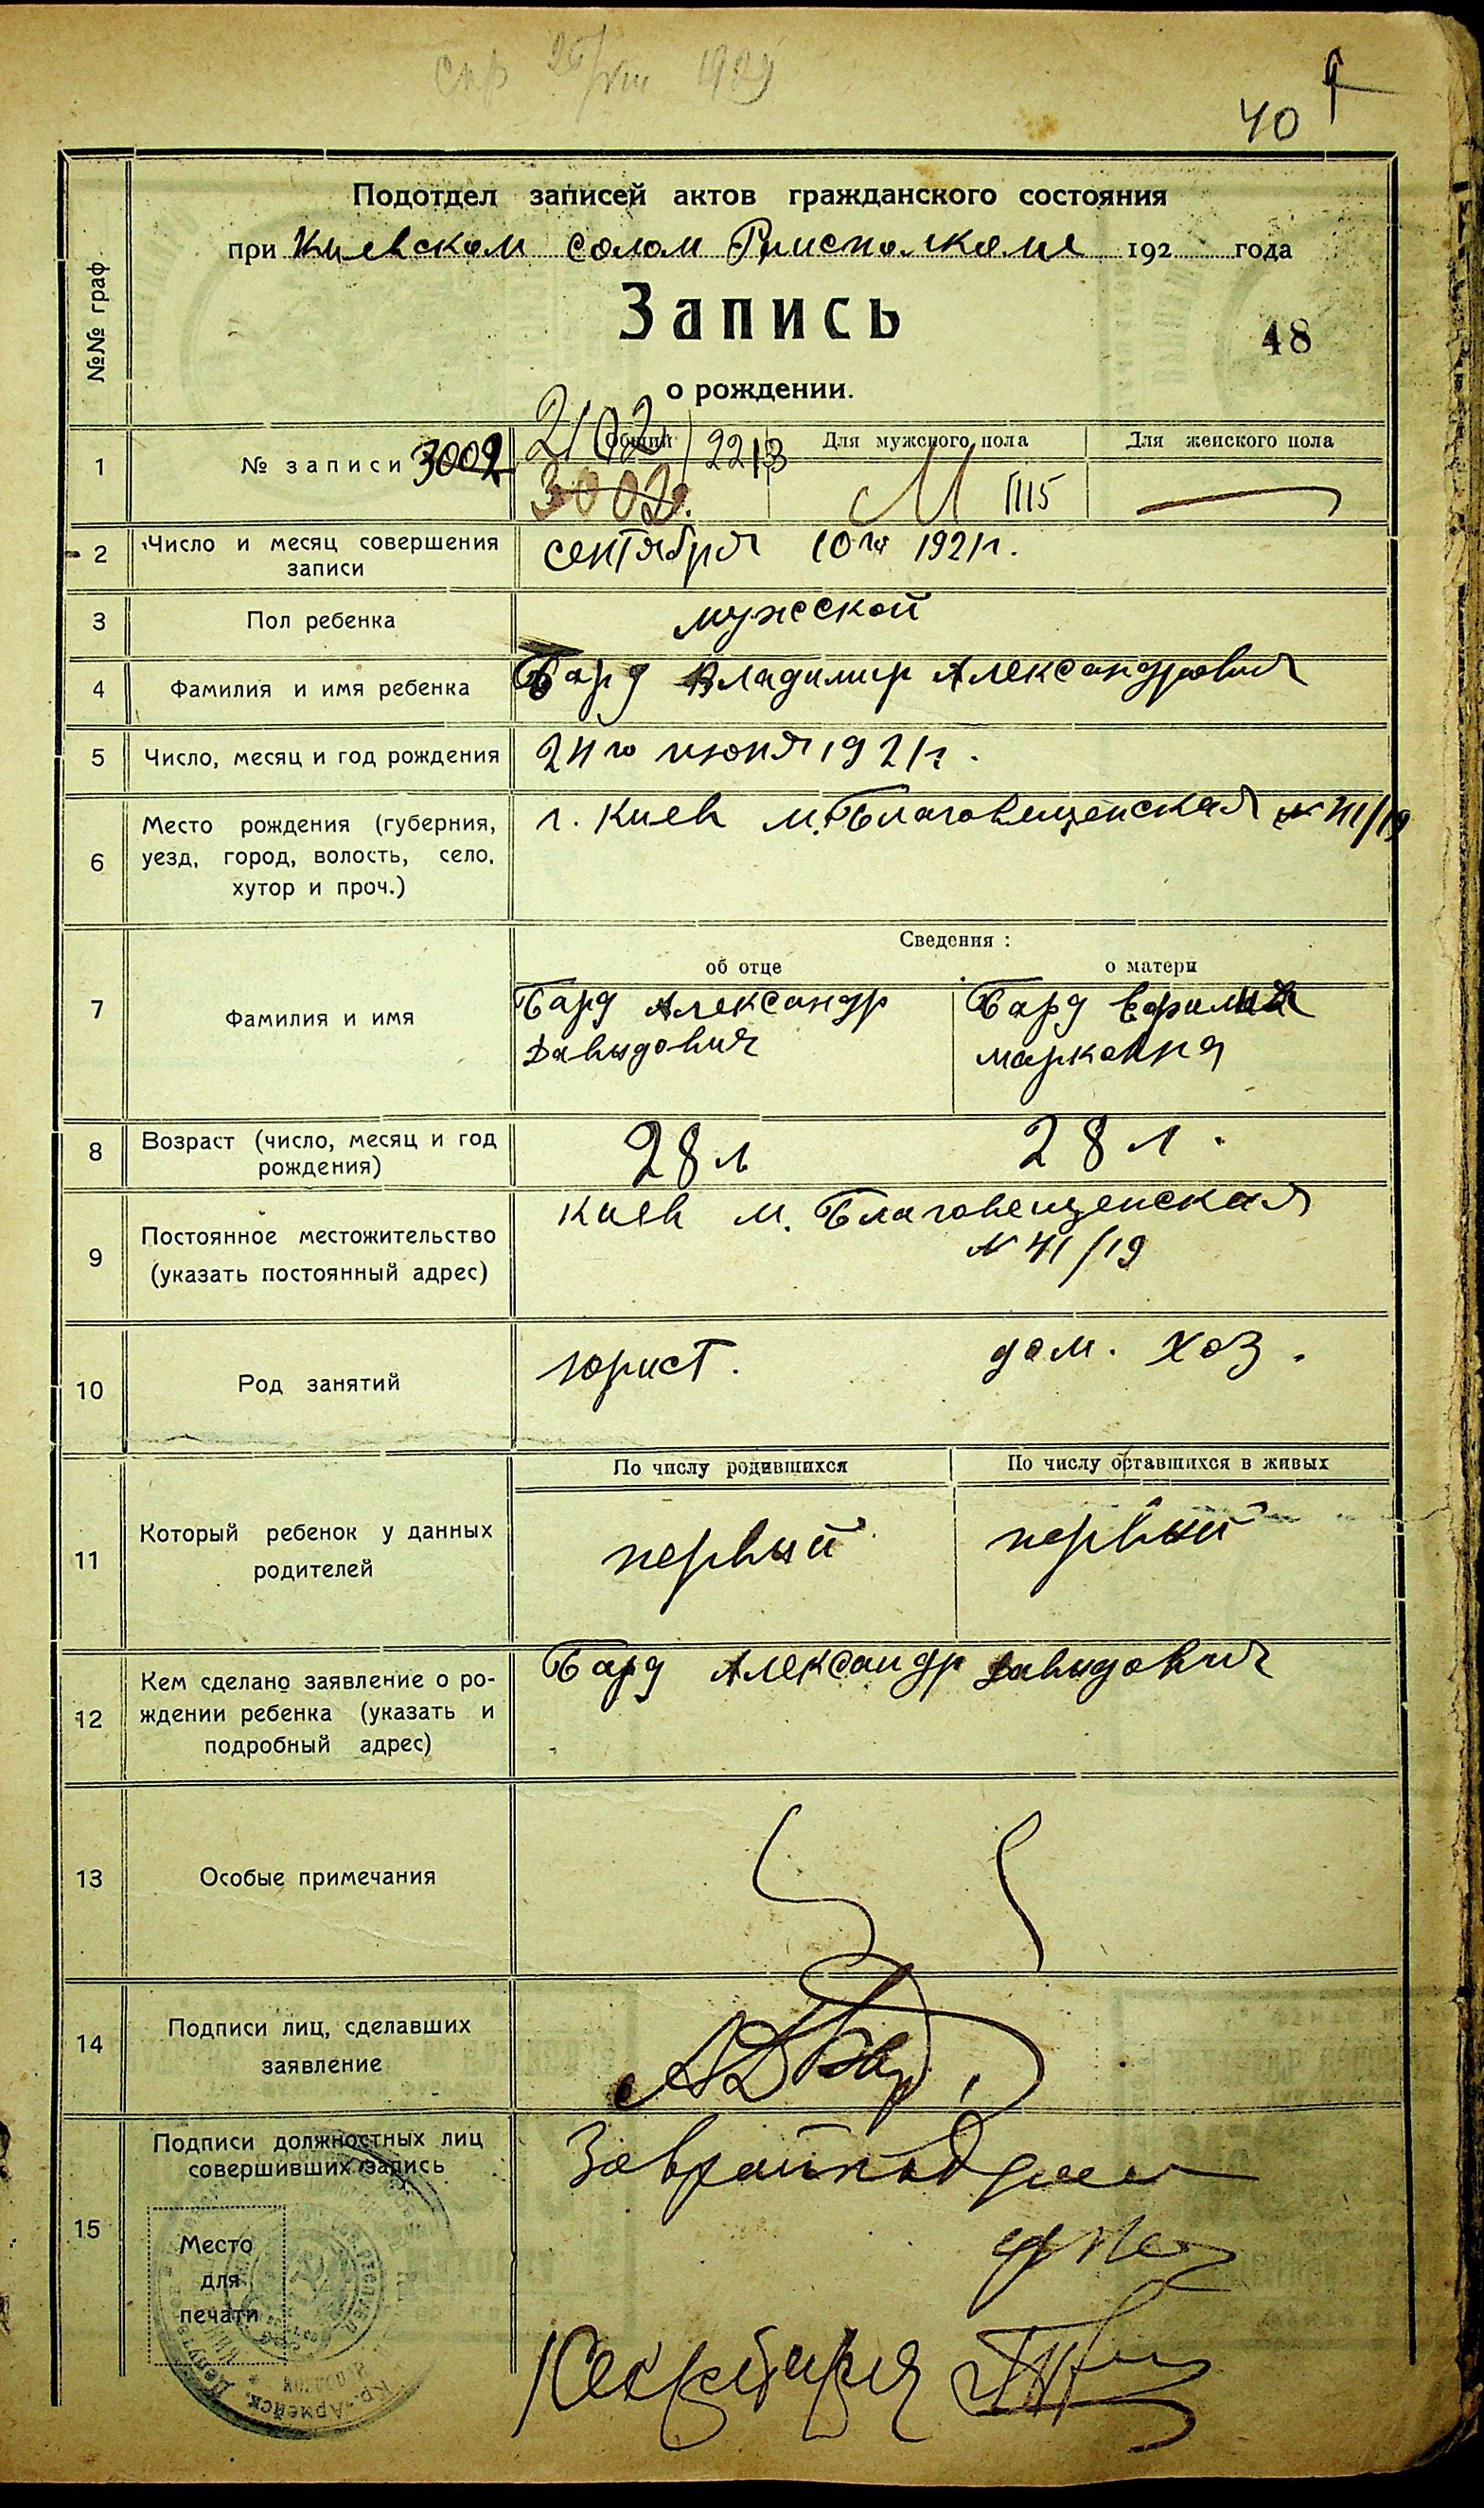 спр 26/VIII 1989
40
Подотдел записей актов гражданского состояния
при Киевском солом Райисполкоме 192 года
Запись
48
о рождении.
№№ граф
1
№ записи 3002
Общий
Для мужского пола
Для женского пола
2102 2213
3002
М 1115
2
Число и месяц совершения
записи
сентября 10го 1921г.
3
Пол ребенка
мужской
4
Фамилия и имя ребенка
Бард Владимир Александрович
5
Число, месяц и год рождения
24го июня 1921г.
6
Место рождения (губерния,
уезд, город, волость, село,
хутор и проч.)
г. Киев М. Благовещенская № 41/19
Сведения:
об отце
о матери
7
Фамилия и имя
Бард Александр
Давыдович
Бард
марковна
8
Возраст (число, месяц и год
рождения)
28 л
28 л.
9
Постоянное местожительство
(указать постоянный адрес)
Киев М. Благовещенская
№ 41/19
10
Род занятий
юрист.
дом. хоз.
11
Который ребенок у данных
родителей
По числу родившихся
По числу оставшихся в живых
первый
первый
12
Кем сделано заявление о ро-
ждении ребенка (указать и
подробный адрес)
Бард Александр Давыдович
13
Особые примечания
14
Подписи лиц, сделавших
заявление
АДБард
15
Подписи должностных лиц
совершивших запись
Место
для
печати